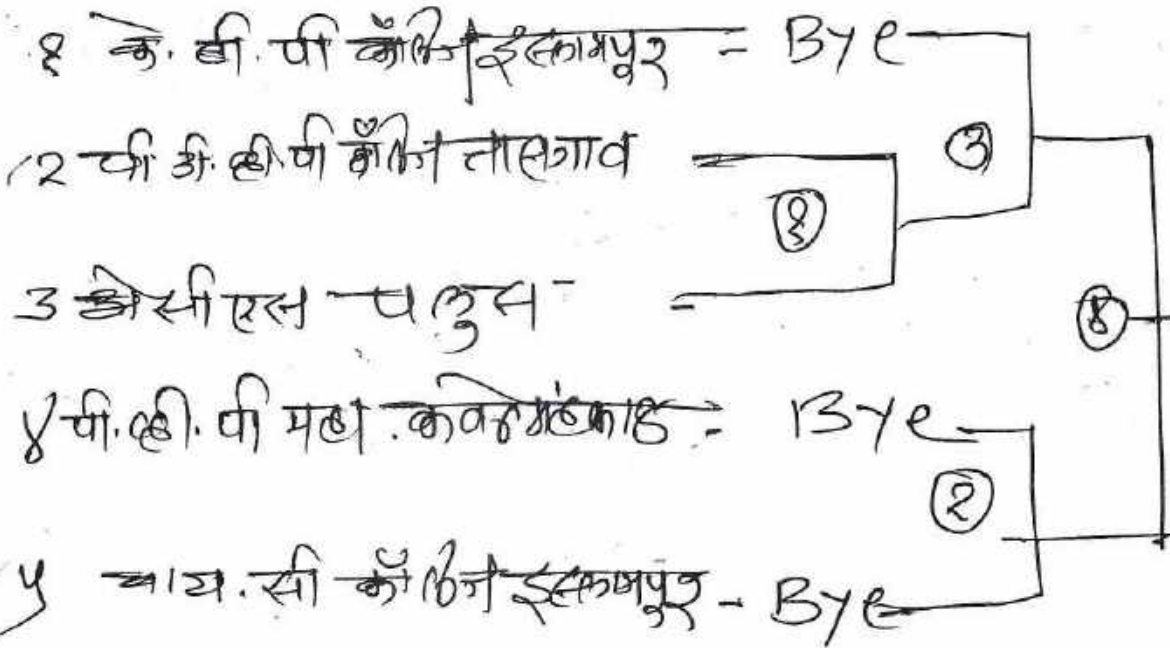 १ के. बी. पी कॉलेज इस्लामपूर - Bye
३
२ पी. डी. व्ही. पी कॉलेज तासगाव
१
3 अे सी एस पलुस -
४
४ पी. व्ही. पी महा. कवठेमहंकाळ - Bye
२
५ वाय. सी कॉलेज इस्लामपूर - Bye